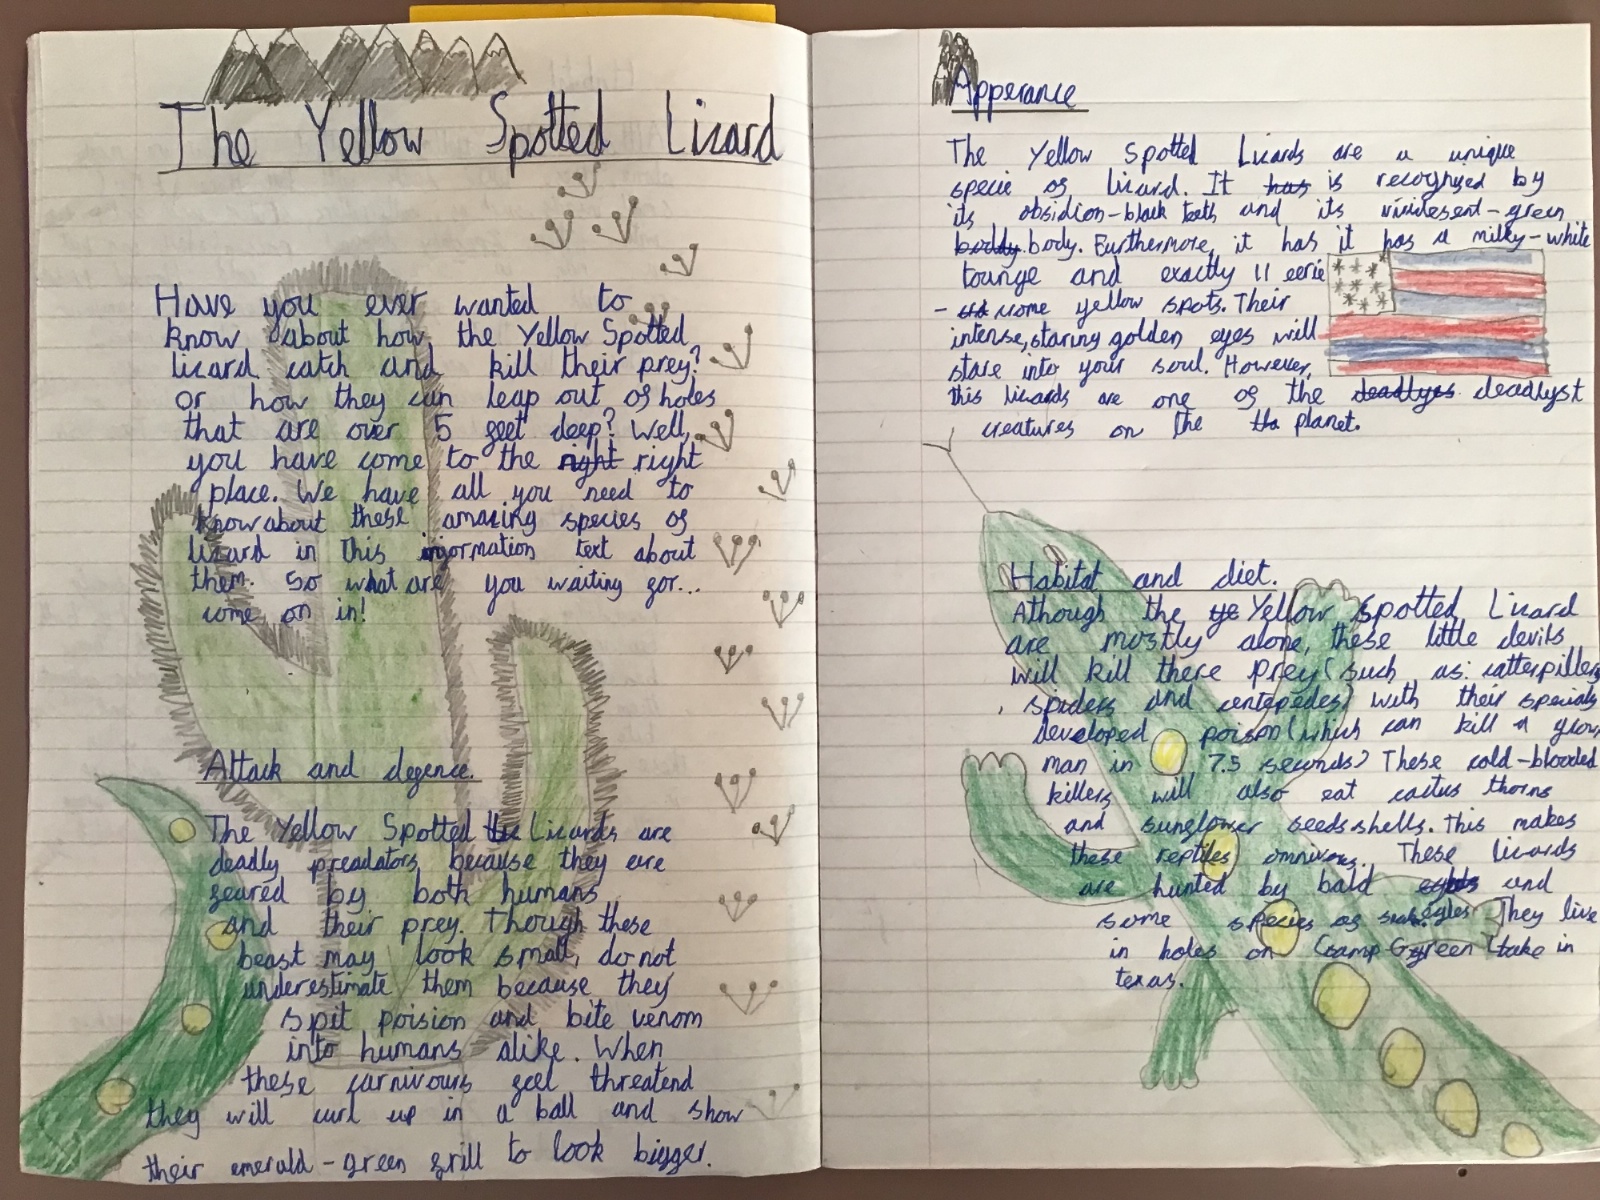 The Yellow Spotted Lizard
Have you ever wanted to
know about how the Yellow Spotted
lizard catch and kill their prey?
or how they can leap out of holes
that are over 5 feet deep? Well,
you have come to the right right
place. We have all you need to
know about these amazing species of
lizard in this information text about
them. So what are you waiting for...
come on in!
Attack and defence.
The Yellow Spotted Lizards are
deadly preadators because they are
feared by both humans
and their prey. Though these
beast may look small, do not
underestimate them because they
spit poision and bite venom
into humans alike. When
these carnivours feel threatend
they will curl up in a ball and show
their emerald-green frill to look bigger.
Apperance
The Yellow Spotted Lizards are a unique
specie of lizard. It has is recognysed by
its obsidion-black teeth and its viridesent-green
boddy body. Furthermore, it has it has a milky-white
tounge and exactly 11 eerie
- some yellow spots. Their
intense, staring golden eyes will
stare into your soul. However,
this lizards are one of the deadlyes deadlyst
creatures on the planet.
Habitat and diet.
Athough the ye Yellow Spotted Lizard
are mostly alone, these little devils
will kill there prey (such as: catterpillers
spiders and centepedes) with their specialy
developed poison (which can kill a grow
man in 7.5 seconds) These cold-blooded
killers will also eat cactus thorns
and sunflower seeds shells. This makes
these reptiles omnivors. These lizards
are hunted by bald and
some species of egles They live
in holes on (camp Green lake in
texas.